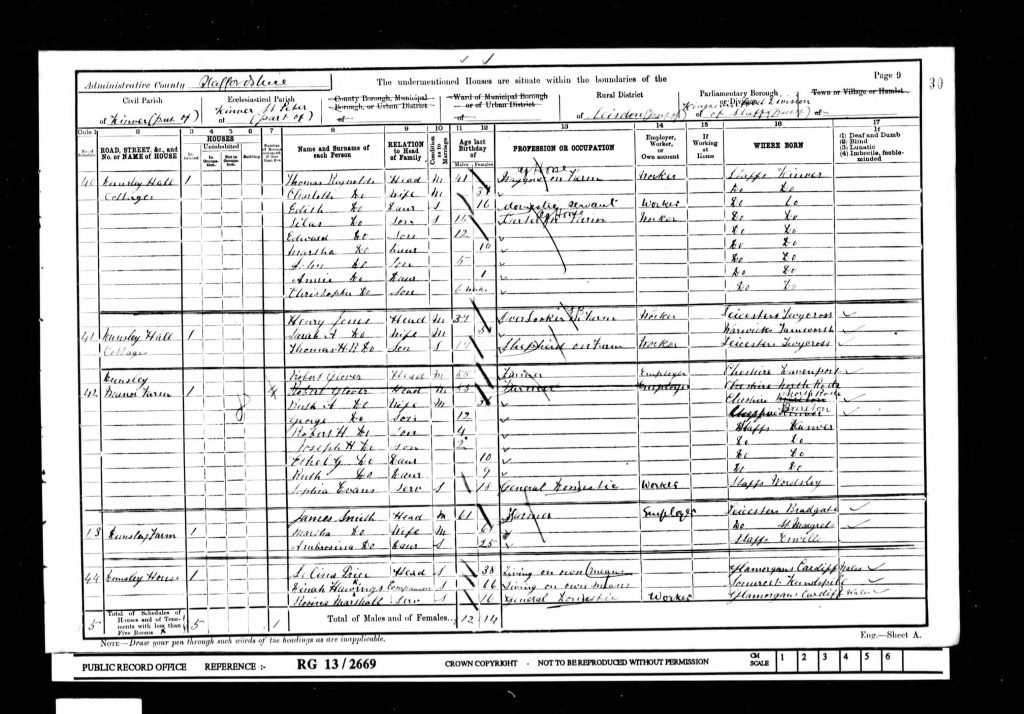 Administrative County Staffordshire
The undermentioned Houses are situate within the boundaries of the
Page 9
39
Civil Parish
of Kinver (part of)
Ecclesiastical Parish
Kinver St Peter
(part of)
County Borough, Municipal
Borough, or Urban District
of
Ward of Municipal Borough
or of Urban District
of
Rural District
of
Parliamentary Borough
or Division
of
Town or Village or Hamlet
of
Cols. 1 2 3 4 5 6 7 8 9 10 11 12 13 14 15 16 17
No. of Schedule
ROAD, STREET, &c., and
No. or NAME of HOUSE
HOUSES
Inhabited
Uninhabited
In Occupation
Not in Occupation
Building
Name and Surname of
each Person
RELATION
to Head
of Family
Condition
as to
Marriage
Age last
Birthday
of
Males Females
PROFESSION OR OCCUPATION
Employer,
Worker,
or
Own account
If
Working
at
Home
WHERE BORN
If
(1) Deaf and Dumb
(2) Blind
(3) Lunatic
(4) Imbecile, feeble-
minded
40 Dunsley Hall 1 Thomas Reynolds Head M 41 Waggoner on Farm Worker Staffs Kinver
Cottages Charlotte Do Wife M Do Do
Edith Do Daur S 16 domestic servant Worker Do Do
Silas Do Son S 15 on Farm Worker Do Do
Edward Do Son 12 Do Do
Martha Do Daur 10 Do Do
Do Son 5 Do Do
Annie Do Daur 1 Do Do
Christopher Do Son 6 mos Do Do
41 Dunsley Hall 1 Henry Jones Head M 57 Overlooker on Farm Worker Leicesters Twycross
Cottages Sarah A Do Wife M Warwicks Tamworth
Thomas H B Do Son S 17 Shepherd on Farm Worker Leicesters Twycross
Dunsley Robert Glover Head M 55 Farmer Employer Cheshire Davenport
42 Manor Farm 1 Robert Glover Head M 55 Farmer Employer Cheshire North Rode
Ruth A Do Wife M Cheshire North Rode
George Do Son 12 Brereton
Robert H Do Son 4 Staffs Kinver
Joseph H Do Son 2 Do Do
Ethel G Do Daur 10 Do Do
Ruth Do Daur 9 Do Do
Sophia Evans Serv S 18 General Domestic Worker Staffs Wordsley
43 Dunsley Farm 1 James Smith Head M 61 Farmer Employer Leicesters
Martha Do Wife M Do
Ambrosina Do Daur S 25 Staffs Enville
44 Dunsley House 1 Selina Price Head S 38 Living on own means Glamorgans Cardiff Wales
Dinah Hawkings Companion S 66 Living on own means Somerset
Rosina Marshall Serv S 16 General Domestic Worker Glamorgans Cardiff Wales
5 Total of Schedules of
Houses and of Tene-
ments with less than
Five Rooms
5 1 Total of Males and of Females... 12 14
NOTE—Draw your pen through such words of the headings as are inapplicable.
Eng.—Sheet A.
PUBLIC RECORD OFFICE REFERENCE :- RG 13/2669 CROWN COPYRIGHT - NOT TO BE REPRODUCED WITHOUT PERMISSION CM SCALE 1 2 3 4 5 6